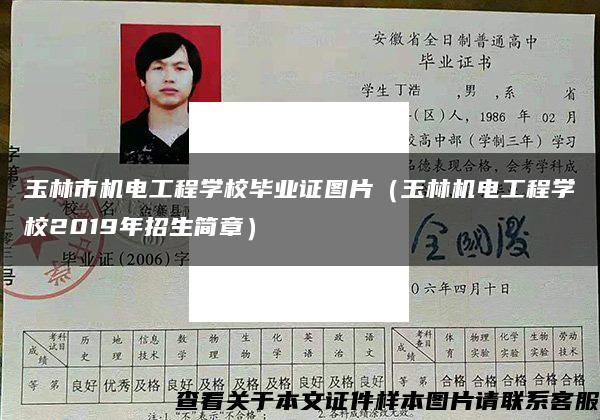 安徽省全日制普通高中
毕业证书
学生 丁浩 ,男 ,系 省
(区)人, 1986 年 02 月
校高中部(学制三年)学习
德表现合格,会考学科成
玉林市机电工程学校毕业证图片(玉林机电工程学
校2019年招生简章)
毕业证(2006)字
〇六年四月十日
考科试目 成绩 历史 地理 信息技术 数学 物理 生物 化学 英语 政治 语文 考科查目 成绩 体育 物理实验 化学实验 生物实验 劳动技术
等 第 良好 优秀 及格 良好 良好 等 第 合格 合格 合格 合格 合格
查看关于本文证件样本图片请联系客服